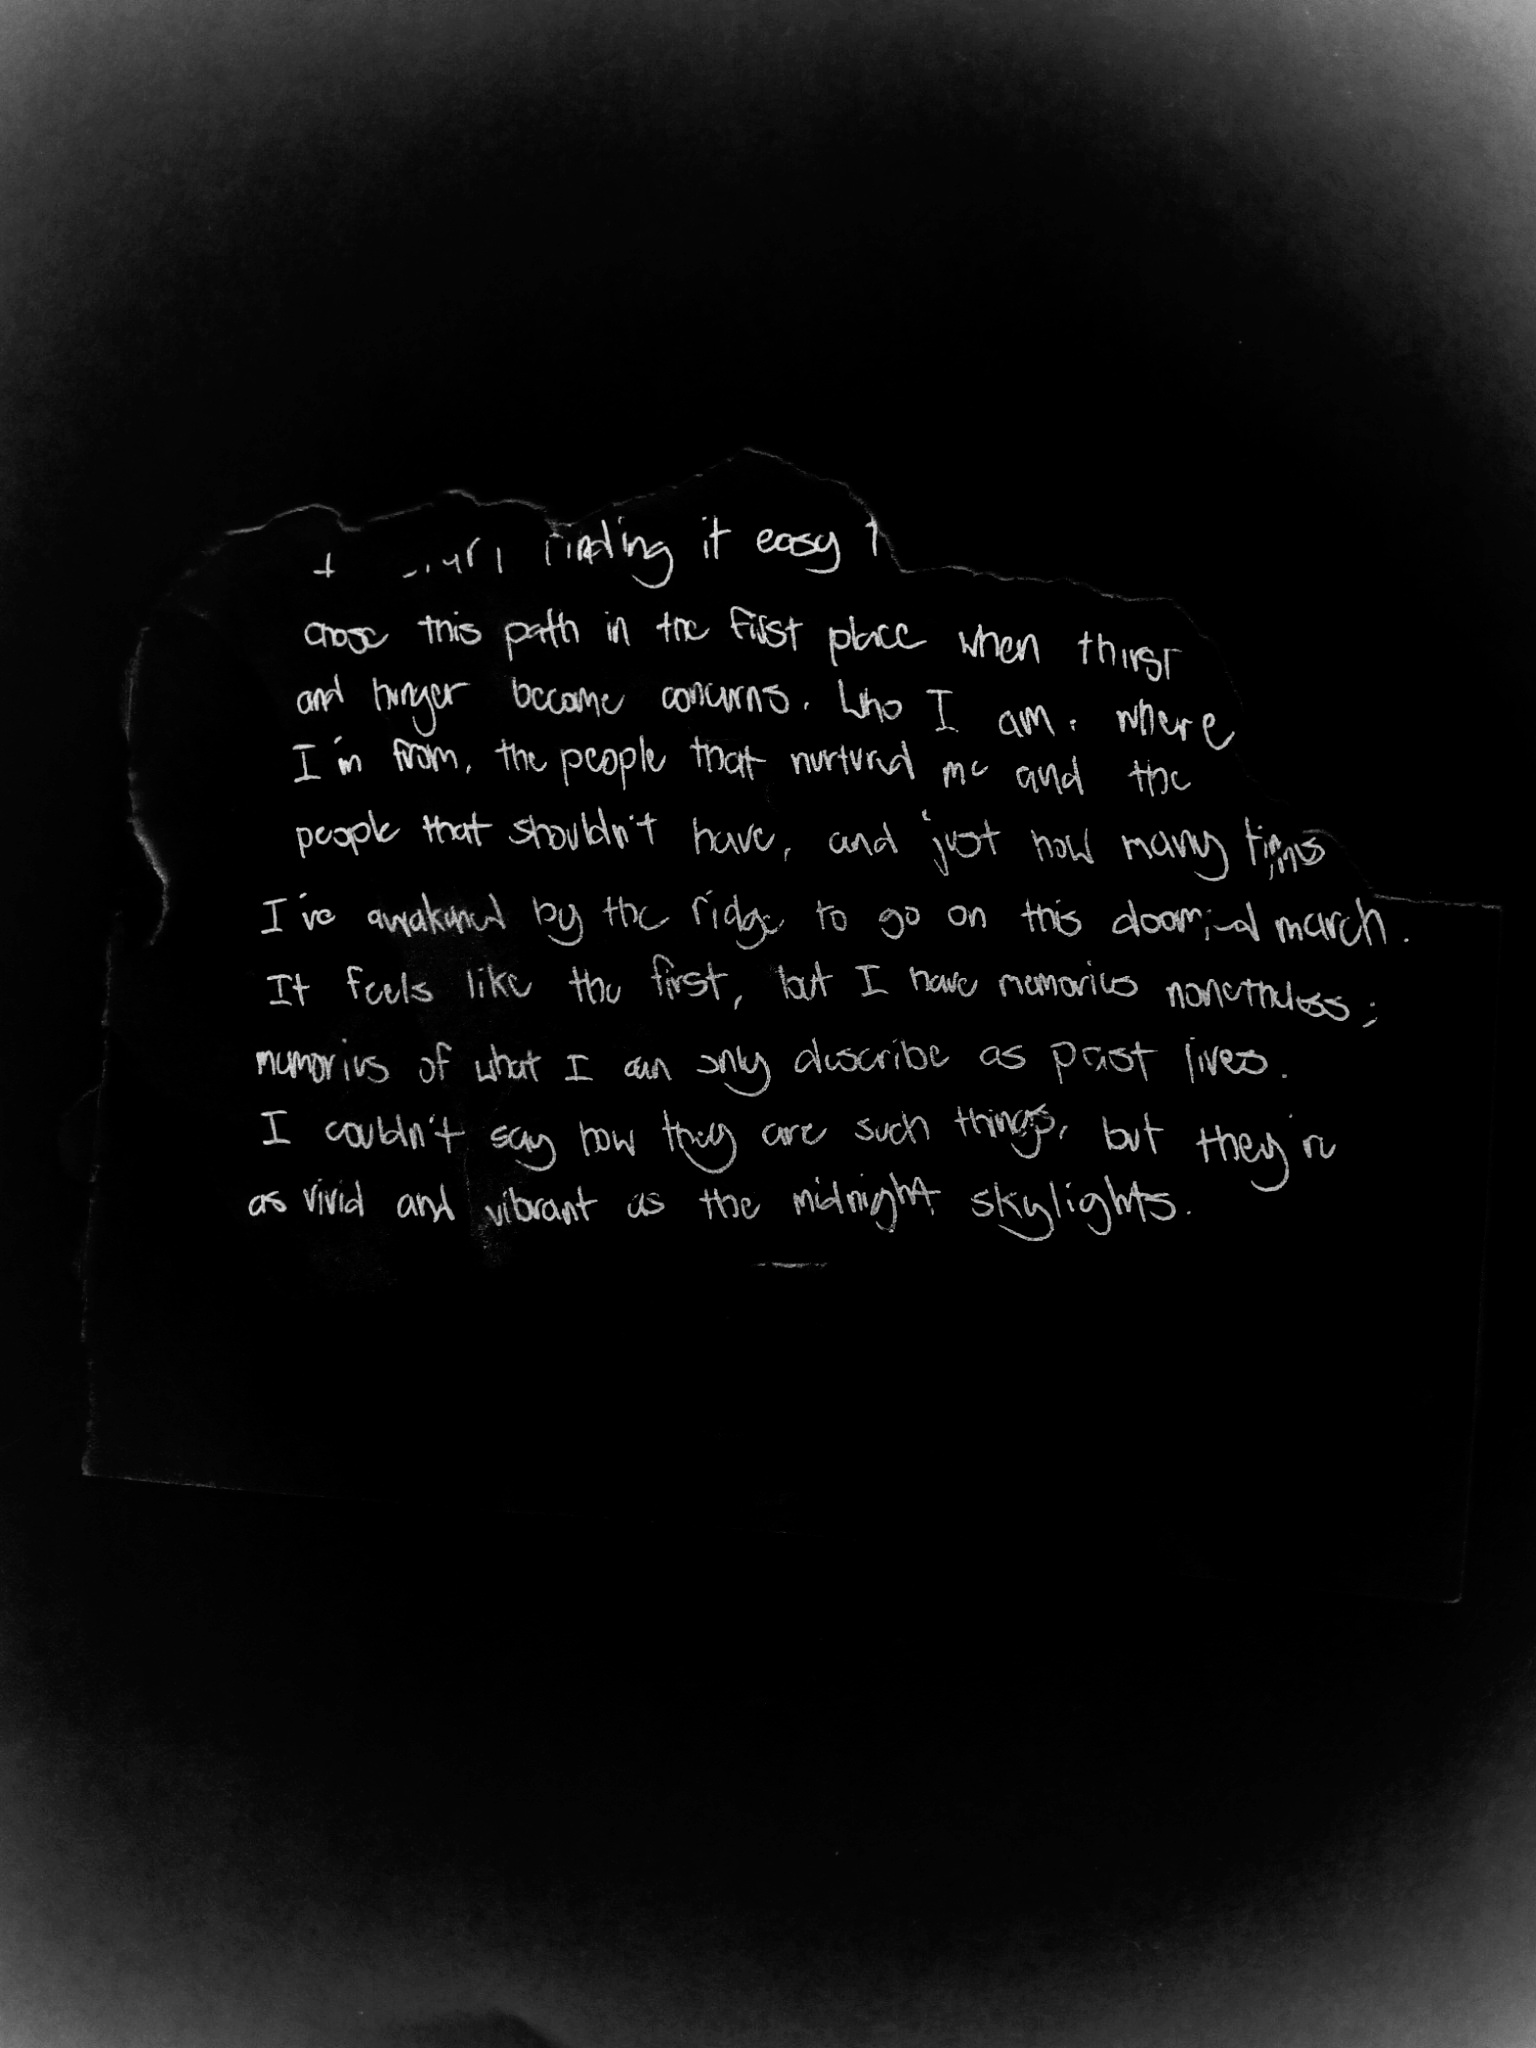 finding it easy
chose this path in the first place when thirst
and hunger become concerns. Who I am. where
I'm from, the people that nurtured me and the
people that shouldn't have, and just how many times
I've awakened by the ridge to go on this doomed march.
It feels like the first, but I have memories nonetheless;
memories of what I can only describe as past lives.
I couldn't say how they are such things, but they're
as vivid and vibrant as the midnight skylights.